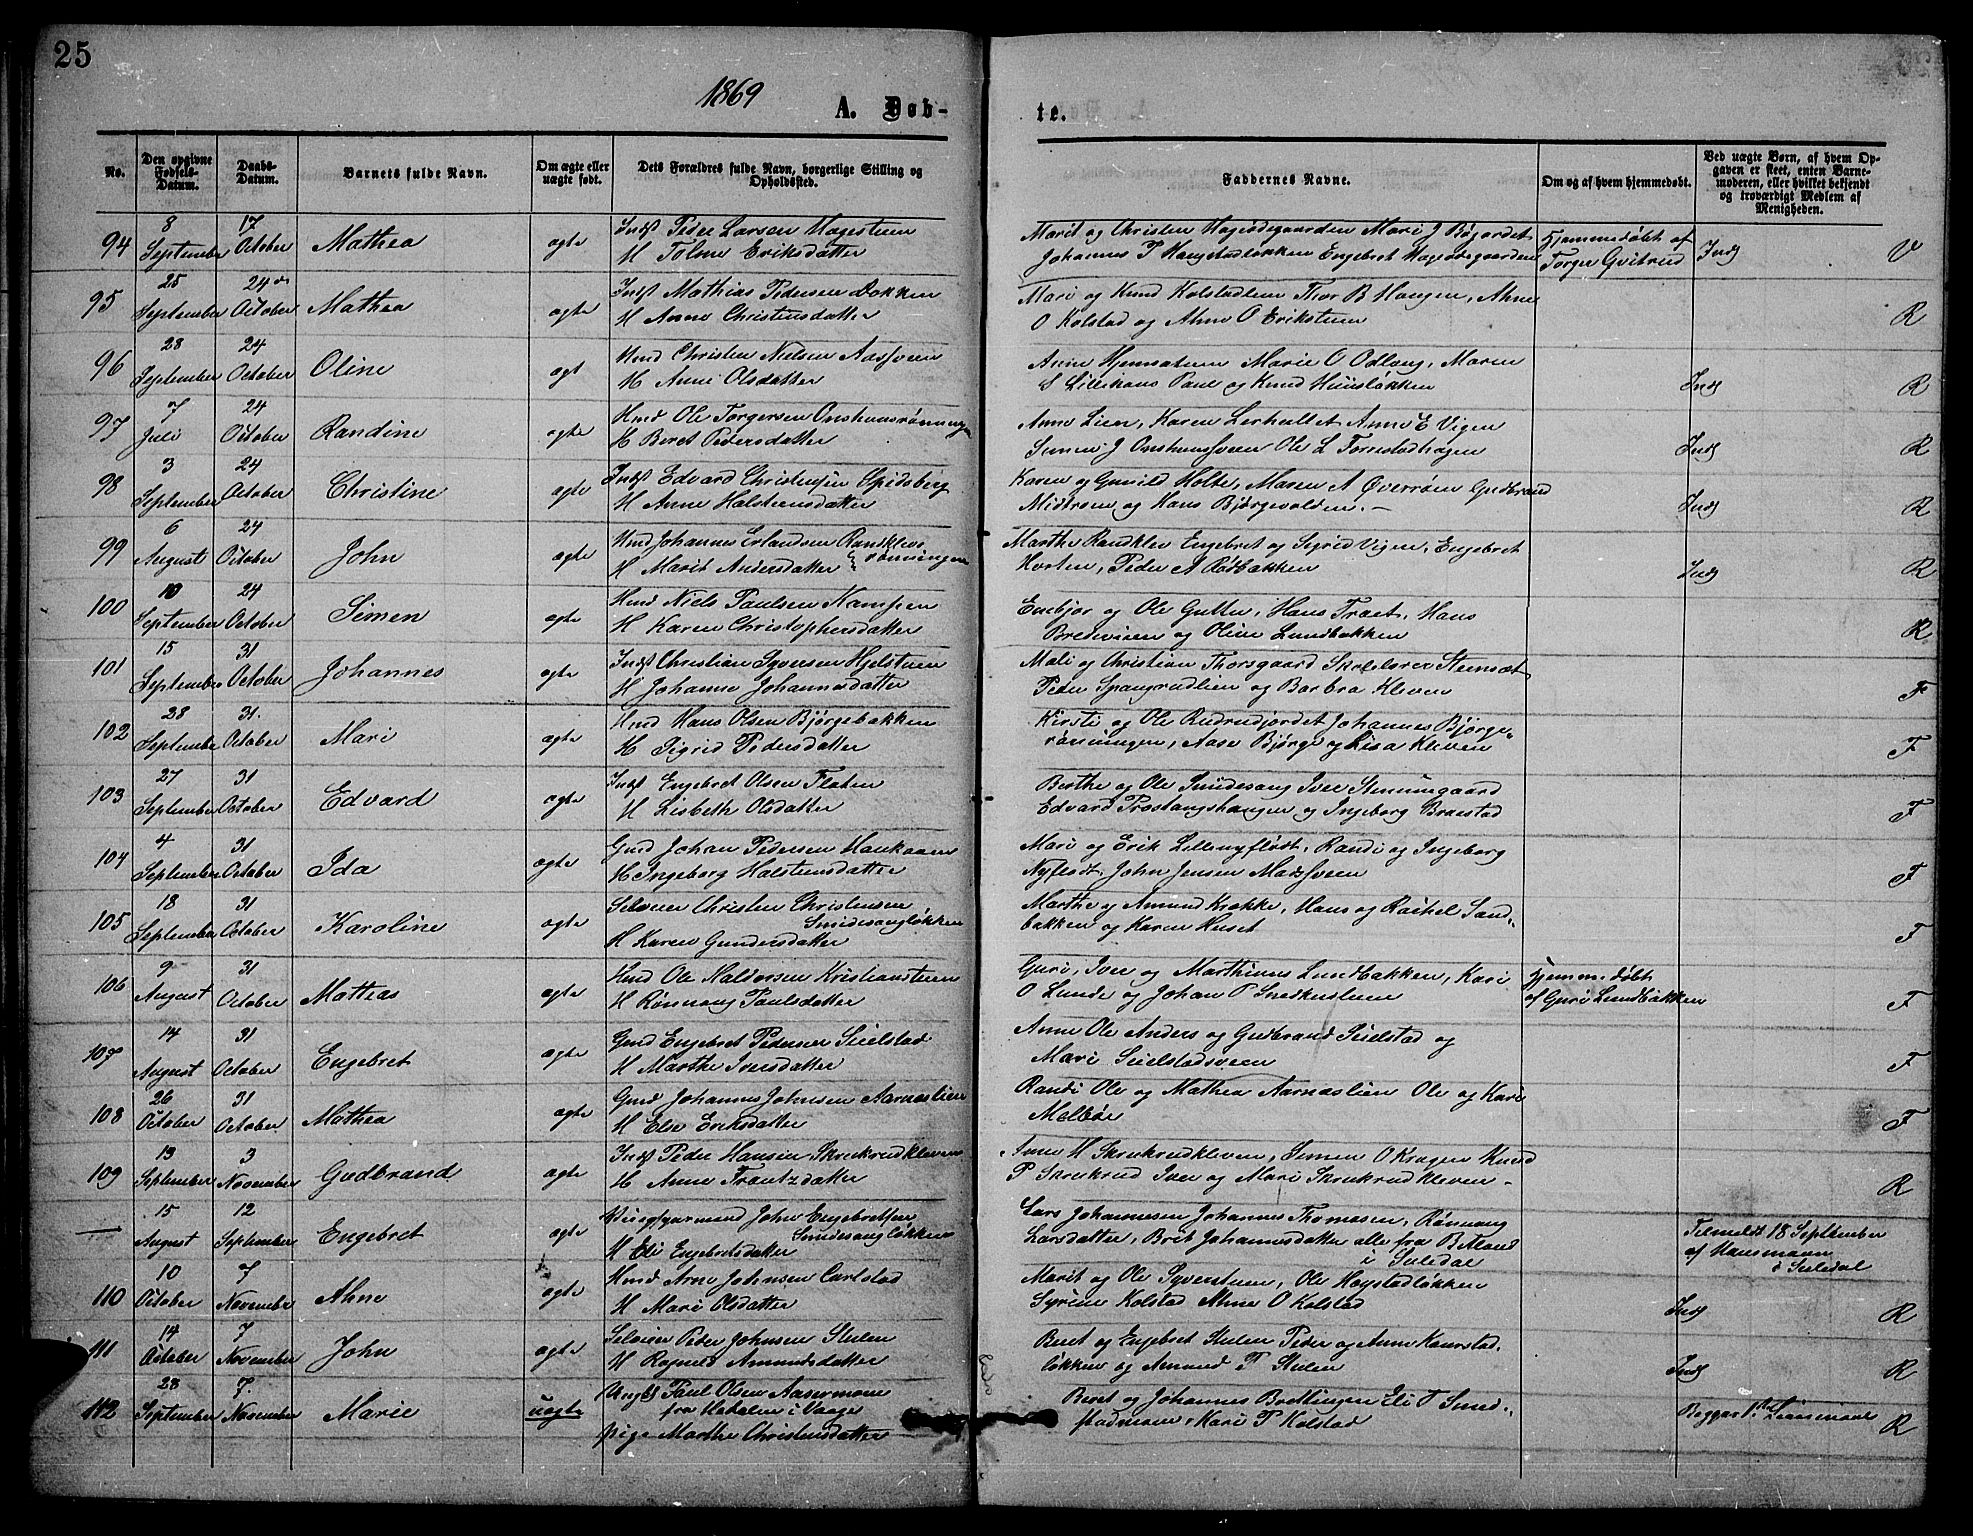 25
1869
A. Døb-
te.
No.
Den opgivne Fødsels-Datum.
Daabs-Datum.
Barnets fulde Navn.
Om ægte eller uægte født.
Dets Forældres fulde Navn, borgerlige Stilling og Opholdssted.
Faddernes Navne.
Om og af hvem hjemmedøbt.
Ved uægte Børn, af hvem Op-
gaven er skeet, enten Barne-
moderen, eller hvilket bekjendt
og troværdigt Medlem af
Menigheden.
94 8 September 17 October Mathea ægte Indst Peder Larsen Hagesteen
H Toline Eriksdatter
Marit og Christen Mari J Bøjordet
Johannes P Engebret
Hjemmedøbt af
Torger Gvitrud
Inds V
95 25 September 24de October Mathea ægte Indst Mathias Pedersen Dokken
H Anne Christensdatter
Mari og Knud Kolstadlien Thor B Haugen, Ahne
O Kolstad og Ahne O Eriksteen
R
96 28 September 24 October Oline ægt Hmd Christen Nielsen Aassveen
H Anne Olsdatter
Anne Marie O Odlaug, Maren
S Paul og Knud
Inds R
97 7 Juli 24 October Randine ægte Hmd Ole Torgersen
H Beret Pedersdatter
Anne Lien, Karen Anne E Vigen
Simen J Ole L
Inds R
98 3 September 24 October Christine ægte Indst Edvard Christensen Spidsberg
H Anne Halsteensdatter
Karen og Gunild Holte, Maren A Øverrøen Gudbrand
Midtrøen og Hans Bjørgevolden.–
Inds R
99 6 August 24 October John ægte Hmd Johannes Erlandsen Randklevs
H Marit Andersdatter rønningen
Marthe Randklev Engebret og Sigrid Vigen, Engebret
Horten, Peder A Rødbakken
Inds R
100 10 September 24 October Simen ægte Hmd Niels Paulsen Kampen
H Karen Christophersdatter
Embjør og Ole Gutto, Hans Træet, Hans
og Oline Lundbakken
R
101 15 September 31 October Johannes ægte Indst Christian Syversen Hjelsteen
H Johanne Johannesdatter
Mali og Christian Thorsgaard Skolelærer
Peder Spangrudlien og Barbra Kleven
F
102 28 September 31. October Mari ægte Hmd Hans Olsen Bjørgebakken
H Sigrid Pedersdatter
Kirsti og Ole Rudrudjordet Johannes Bjørge-
rønningen, Aase Bjørge og Lisa Kleven
F
103 27 September 31 October Edvard ægte Indst Engebret Olsen Flaten
H Lisbeth Olsdatter
Berthe og Ole Smidesang Iver Steningaard
Edvard Prostangshaugen og Ingeborg Bræstad
F
104 4 September 31 October Ida ægte Gmd Johan Pedersen Haukaaen
H Ingeborg Halsteensdatter
Mari og Erik Lillenyflødt, Randi og Ingeborg
Nyflødt, John Jensen Madssveen
F
105 18 September 31 October Karoline ægte Selveier Christen Christensen
Smidesangløkken
H Karen Gundersdatter
Marthe og Amund Krokke, Hans og Rachel Sand-
bakken og Karen Huset
F
106 9 August 31 October Mathias ægte Hmd Ole Haldorsen Kristianstuen
H Rønnaug Paulsdatter
Guri, Iver og Marthinus Lundbakken, Kari
O Lunde og Johan P
Hjemmedøbt
af Guri Lundbakken
F
107 14 August 31 October Engebret ægte Gmd Engebret Pedersen Seielstad
H Marthe Iversdatter
Anne Ole Anders og Gudbrand Seielstad og
Mari Seielstadsveen
F
108 26 October 31 October Mathea ægte Gmd Johannes Johnsen Aarnæslien
H Else Eriksdatter
Randi Ole og Mathea Aarnæslien Ole og Kari
Melbøe
F
109 13 September 3 November Gudbrand ægte Indst Peder Hansen Skrukrudkleven
H Anne Frantzdatter
Anne H Skrukrudkleven, Simen O Kragen Knud
P Skrukrud Iver og Mari Skrukrudkleven –
R
— 15 August 12 September Engebret ægte John Engebretsen
Smidesangløkken
H Eli Engebretsdatter
Lars Johannesen Johannes Thomesen, Rønnaug
Larsdatter, Brit Johannesdatter alle fra
i Suledal
Tilmeldt 18 September
af Hansmann
i Suledal
110 10 October 7 November Ahne ægte Hmd Arne Johnsen Carlstad
H Mari Olsdatter
Marit og Ole Syversteen, Ole Haystadløkken
Syrine Kolstad Ahne O Kolstad
Inds R
111 14 October 7 November John ægte Selveier Peder Johnsen Stulen
H Ragnild Amundsdatter
Beret og Engebret Stulen Peder og Anne
løkken og Amund P Stulen
Inds R
112 28 September 7. November Marie uægte Ungk Paul Olsen
fra Hedalen i Vaage
pige Marthe Christensdatter
Beret og Johannes Brettingen Eli T
Kari P Kolstad
Begges 1ste Leiermaal
R